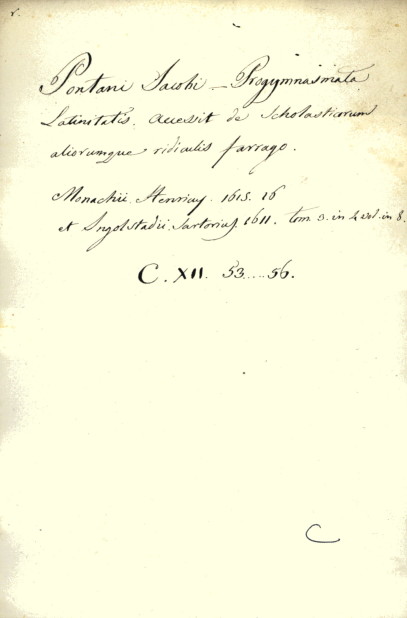 r.
Pontani Jacobi — Progymnasmata
Latinitatis. accessit de Scholasticorum
aliorumque ridiculis farrago.
Monachii. Henricus. 1615. 16
et Ingolstadii. Sartorius. 1611. tom. 3. in 4 vol. in 8.
C. XII. 53....56.
C